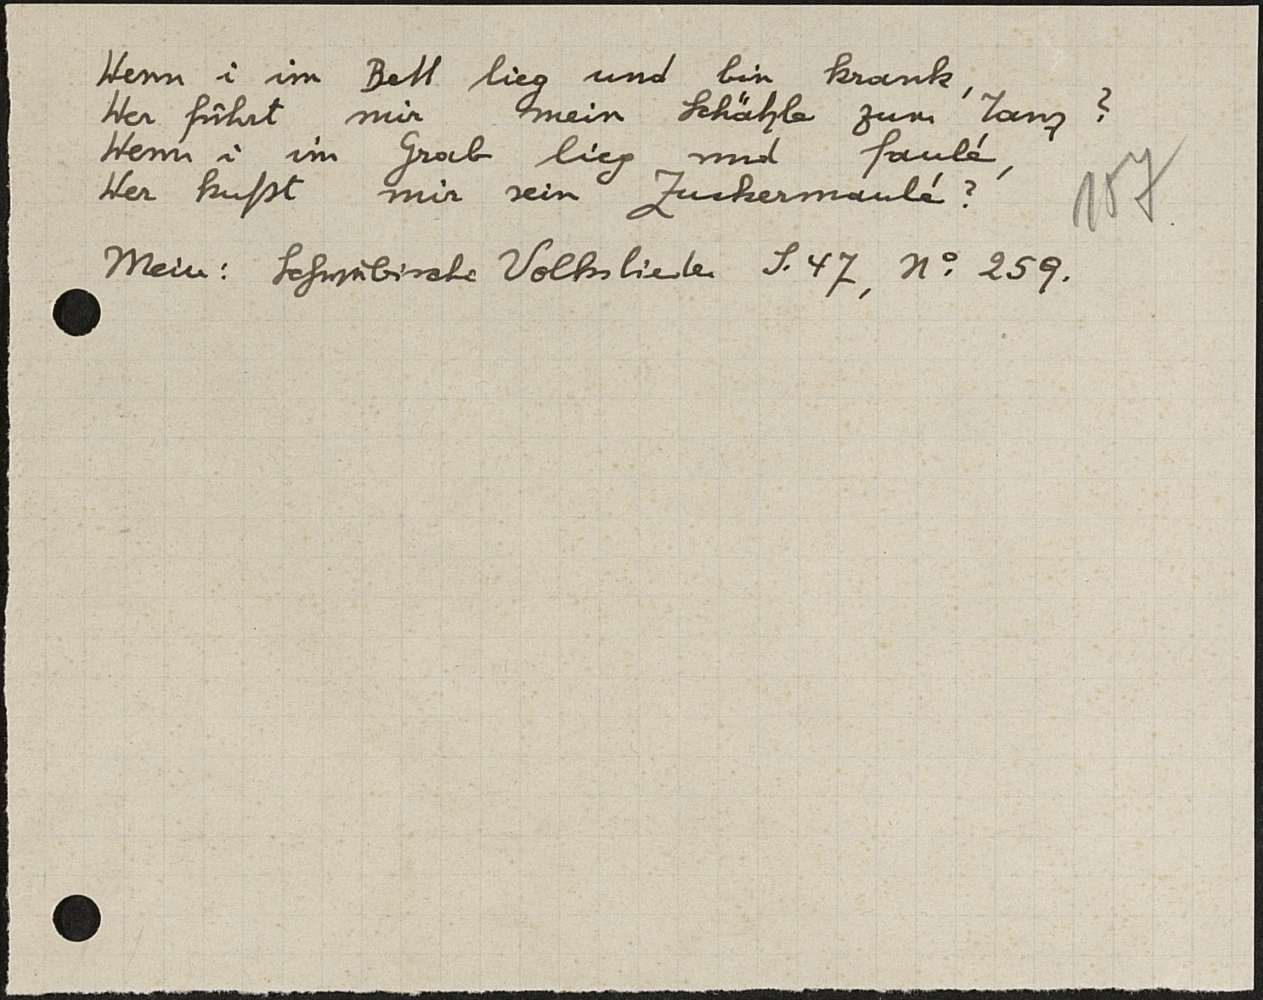 Wenn i im Bett lieg und bin krank,
Wer führt mir mein Schätzle zum Tanz?
Wenn i im Grab lieg und faulé,
Wer kußt mir sein Zuckermaulé?
157
Mein: Schwäbische Volkslieder S. 47, No. 259.